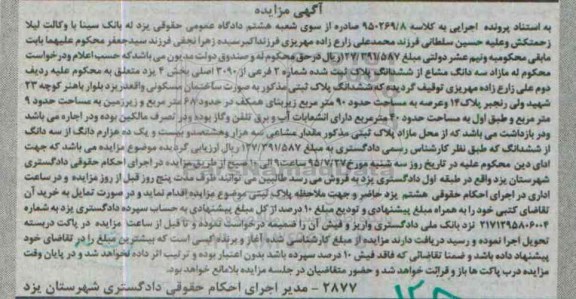 آگهی مزایده
به استناد پرونده اجرایی به کلاسه ۹۵۰۲۶۹/۸ صادره از سوی شعبه هشتم دادگاه عمومی حقوقی یزد له بانک سینا با وکالت لیلا
زحمتکش وعلیه حسین سلطانی فرزند محمدعلی زارع زاده مهریزی فرزنداکبر سیده زهرا نجفی فرزند سیدجعفر محکوم علیهما بابت
مابقی محکومبه ونیم عشر دولتی مبلغ ۱۲۷/۲۹۱/۵۸۷ریال درحق محکوم له و صندوق دولت مدیون می باشدکه حسب اعلام ودرخواست
محکوم له مازاد سه دانگ مشاع از ششدانگ پلاک ثبت شده شماره ۲ فرعی از ۳۰۹۰ اصلی بخش ۴ یزد متعلق به محکوم علیه ردیف
دوم علی زارع زاده مهریزی توقیف گردیدکه ششدانگ پلاک ثبتی مذکور به صورت ساختمان مسکونی واقعدریزد بلوار باهنر کوچه ۲۳
شهید ولی رنجبر پلاک۱۴ وعرصه به مساحت حدود ۹۰ متر مربع زیربنای همکف در حدود ۶۸ متر مربع و زیرزمین به مساحت حدود ۹
متر مربع و طبق اول به مساحت حدود ۴۰ مترمربع دارای انشعابات آب و برق تلفن وگاز بوده ودر تصرف مالکین بوده ودر اجاره می باشد
ودر بازداشت می باشد که از محل مازاد پلاک ثبتی مذکور مقدار مشاعی سه هزار وهشتصدو بیست و یک ده هزارم دانگ از سه دانگ
از ششدانگ که طبق نظر کارشناس رسمی دادگستری به مبلغ ۱۲۷/۲۹۱/۵۸۷ریال ارزیابی گردیده موضوع مزایده می باشد که جهت
ادای دین محکوم علیه در تاریخ روز سه شنبه مورخ ۹۵/۷/۲۷ ساعت ۹ الی ۱۰ صبح از طریق مزایده در اجرای احکام حقوقی دادگستری
شهرستان یزد واقع در طبقه اول دادگستری یزد به فروش می رسد طالبین می توانند ظرف مدت پنج روز قبل از روز مزایده و در ساعت
اداری در اجرای احکام حقوقی هشتم یزد حاضر و جهت ملاحظه پلاک ثبتی موضوع مزایده اقدام نماید و در صورت تمایل به خرید آن
تقاضای کتبی خود را به همراه مبلغ پیشنهادی و تودیع مبلغ ۱۰ درصد از کل مبلغ پیشنهادی به حساب سپرده دادگستری یزد به شماره
نزد بانک ملی دادگستری واریز و فیش آن را ضمیمه درخواست نموده و تا قبل از ساعت مزایده در پاکت دربسته
تحویل اجرا نموده و رسید دریافت دارند مزایده از مبلغ کارشناسی شده آغاز و برنده کسی است که بیشترین مبلغ را در تقاضای خود
پیشنهاد داده باشد و ضمنا تقاضائی که فاقد فیش ۱۰ درصد سپرده باشد بدون اعتبار بوده و ترتیب اثر داده نخواهد شد و در پایان وقت
مزایده درب پاکت ها باز و قرائت خواهد شد و حضور متقاضیان در جلسه مزایده بلامانع خواهد بود.
۲۸۷۷ - مدیر اجرای احکام حقوقی دادگستری شهرستان یزد